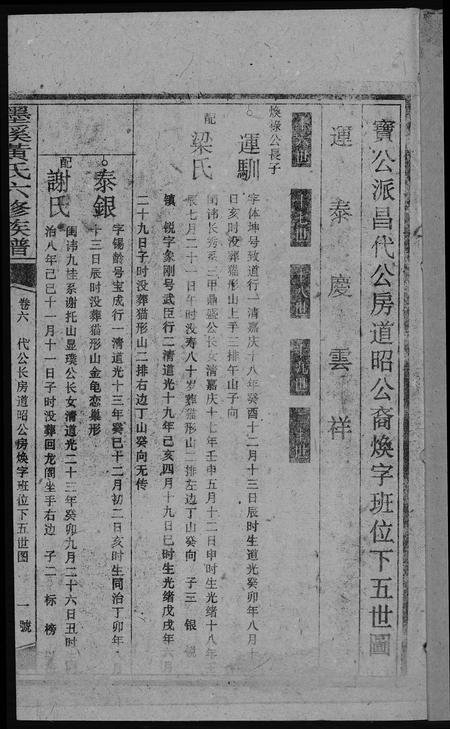 寶公派昌代公房道昭公裔煥字班位下五世圖
運泰慶雲祥
十六世 十七世 十八世 十九世 二十世
煥祿公長子
運馴
字体坤号致道行一清嘉庆十八年癸酉十二月十三日辰时生道光癸卯年八月十
日亥时没葬猫形山上手三排午山子向
配梁氏
闺讳长秀系三甲鼎盛公长女清嘉庆十七年壬申五月十二日申时生光绪十八年
辰七月二十一日午时没寿八十岁葬猫形山二排左边丁山癸向 子三 银 锐
镇 锐字象刚号武臣行二清道光十九年己亥四月十九日巳时生光绪戊戌年
二十九日子时没葬猫形山二排右边丁山癸向无传
泰銀
字锡龄号宝成行一清道光十三年癸巳十二月初二日亥时生同治丁卯年
十三日辰时没葬猫形山金龟恋巢形
配謝氏
闺讳九桂系谢托山显璞公长女清道光二十三年癸卯九月二十六日丑时
治八年己巳十一月十一日子时没葬回龙阁坐手右边 子二 标 榜
墨溪黃氏六修族譜
卷六 代公长房道昭公房焕字班位下五世图 一號